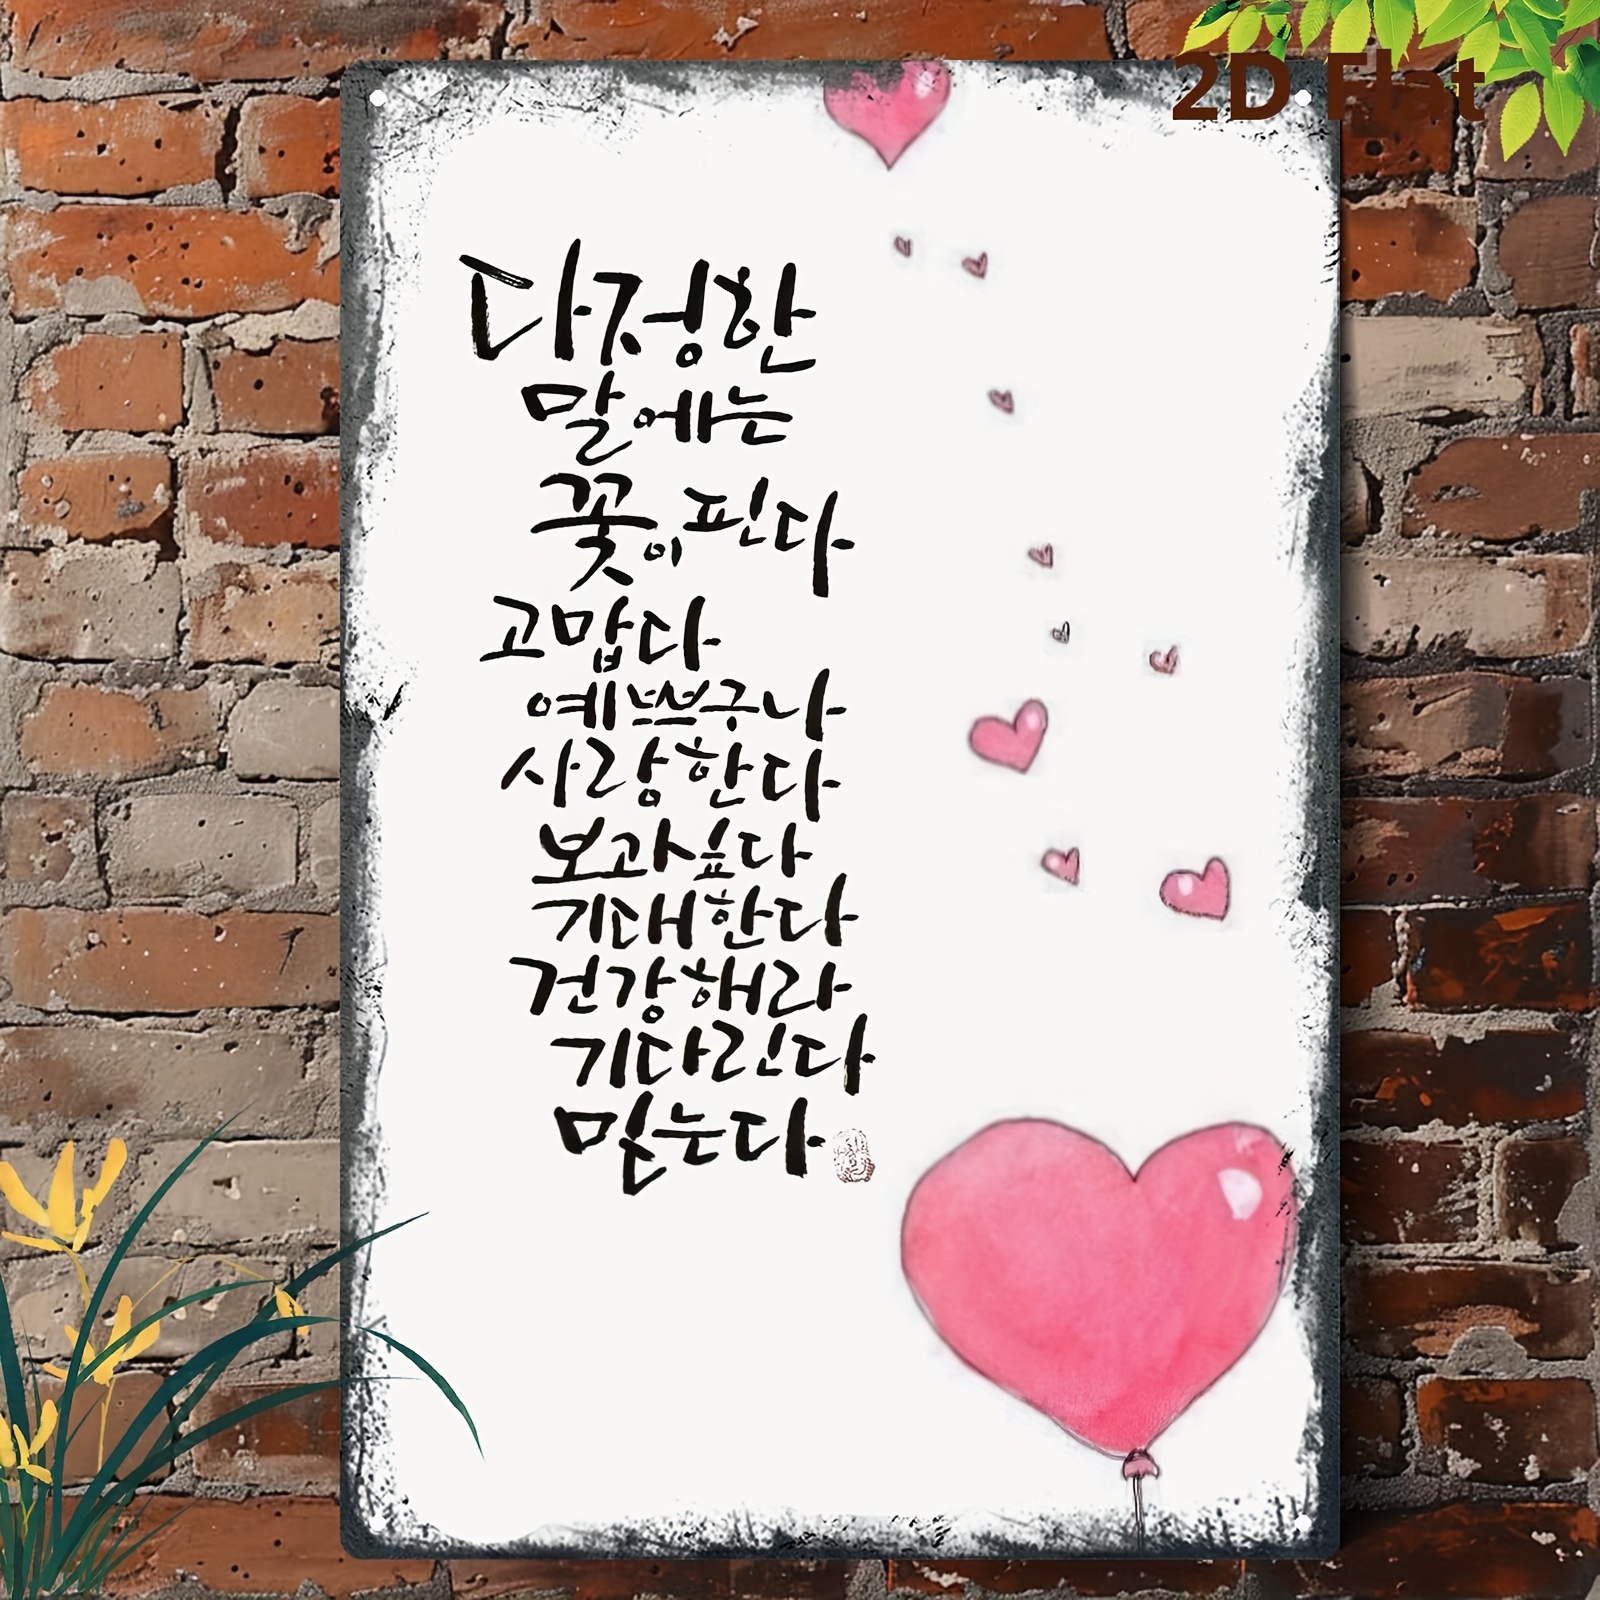 2D Flat
다정한
말에는
꽃이 핀다
고맙다
예쁘구나
사랑한다
보고싶다
기대한다
건강해라
기다린다
믿는다